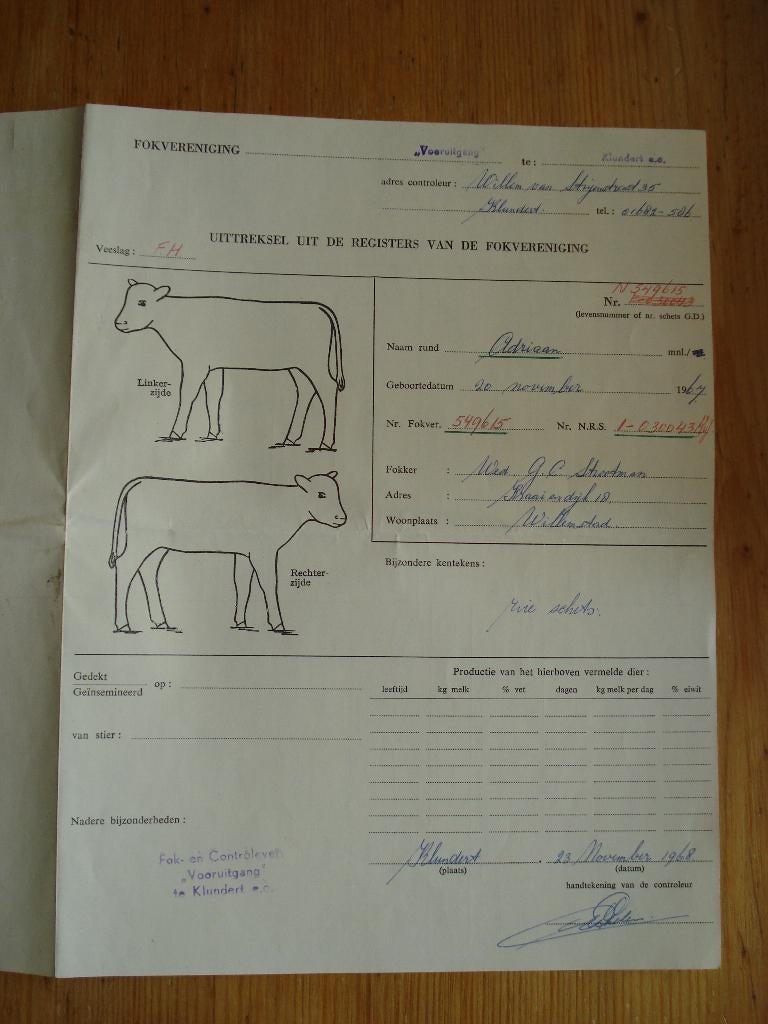 FOKVERENIGING „Vooruitgang" te: Klundert e.o.
adres controleur: Willem van Strijenstraat 35
Klundert. tel.: 01682-506
UITTREKSEL UIT DE REGISTERS VAN DE FOKVERENIGING
Veeslag: FH
N 549615
Nr.
(levensnummer of nr. schets G.D.)
Naam rund Adriaan mnl./
Geboortedatum 20 november 1967
Nr. Fokver. 549615 Nr. N.R.S. 1-030043
Fokker : Wed G.C. Strootman
Adres : Kraaiendijk 18
Woonplaats : Willemstad
Linker-
zijde
Rechter-
zijde
Bijzondere kentekens:
zie schets.
Gedekt
Geïnsemineerd op:
van stier:
Nadere bijzonderheden:
Productie van het hierboven vermelde dier:
leeftijd kg melk % vet dagen kg melk per dag % eiwit
Fok- en Contrôlever.
„Vooruitgang"
te Klundert e.o.
Klundert . 23 November 1968
(plaats) (datum)
handtekening van de controleur